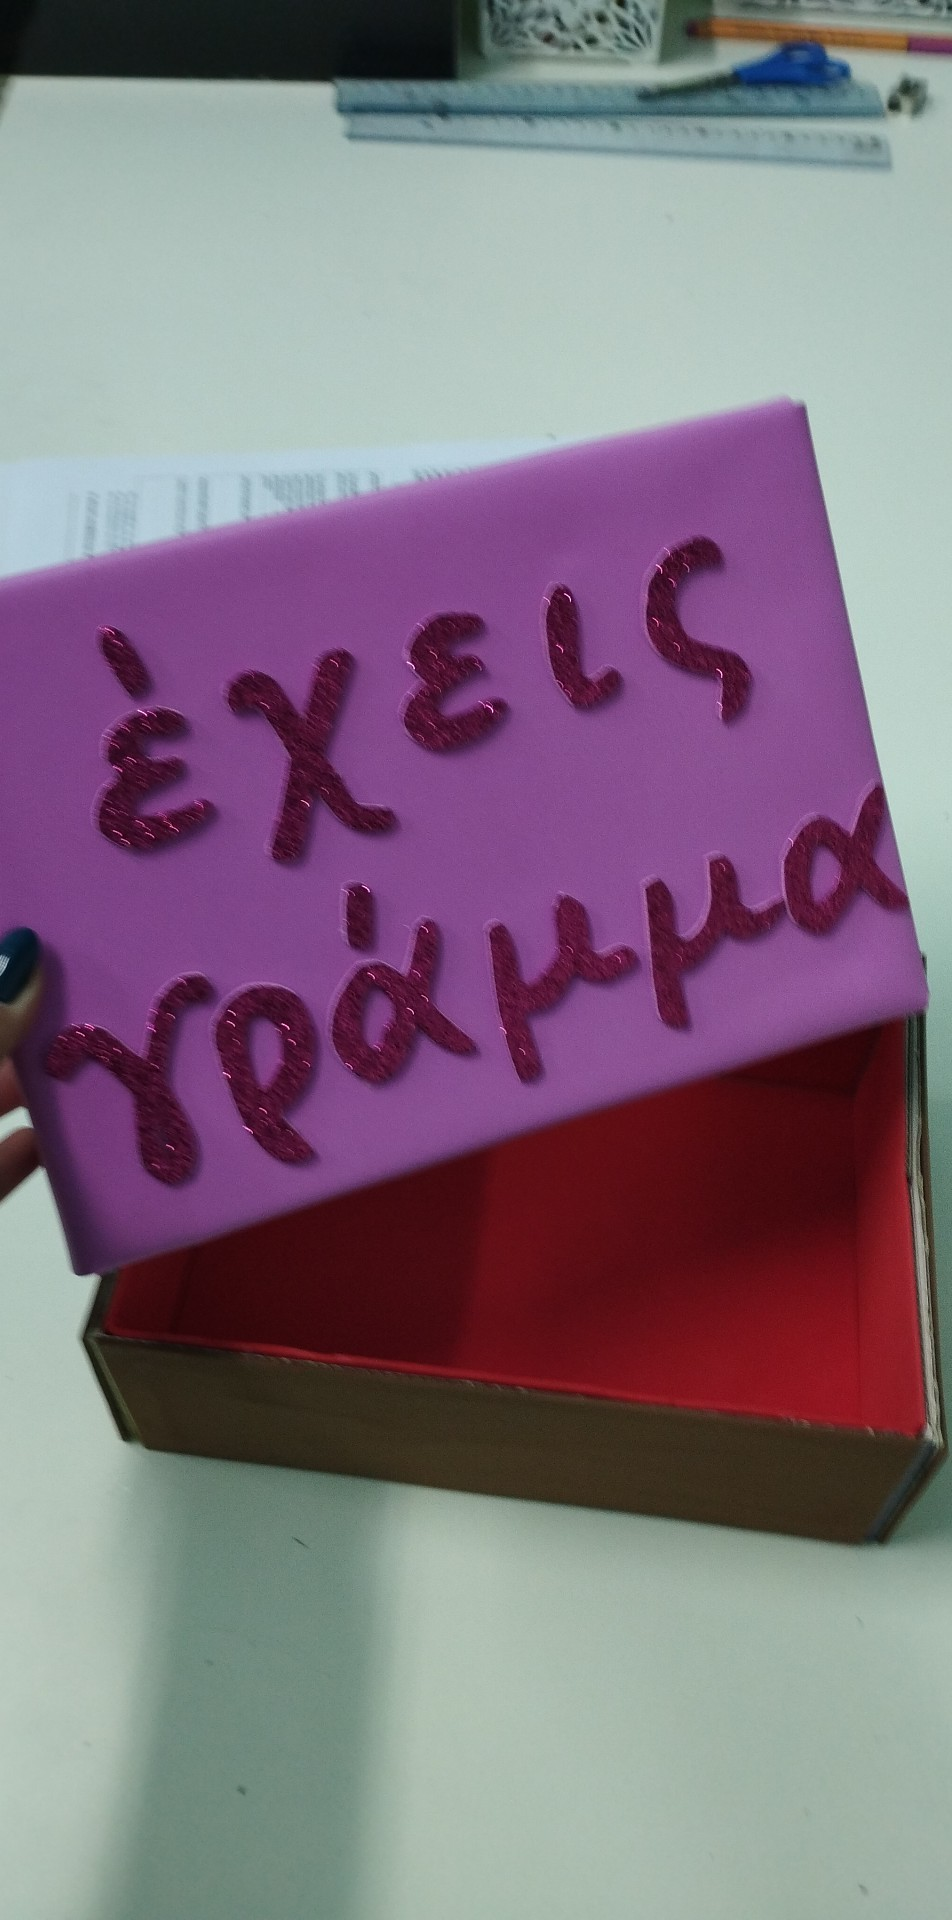 έχεις
γράμμα